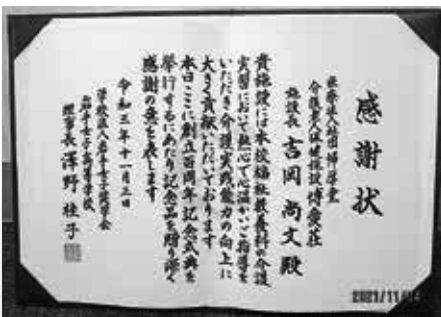 感謝状
医療法人社団帰厚堂
介護老人保健施設博愛荘
施設長 吉岡尚文殿
貴施設には本校福祉教養科の介護
実習において熱心で心温かいご指導を
いただき介護実践能力の向上に
大きく貢献いただいております
本日ここに創立百周年記念式典を
挙行するにあたり記念品を贈り深く
感謝の意を表します
令和三年十一月三日
学校法人岩手女子奨学会
岩手女子高等学校
理事長 澤野桂子
2021/11/